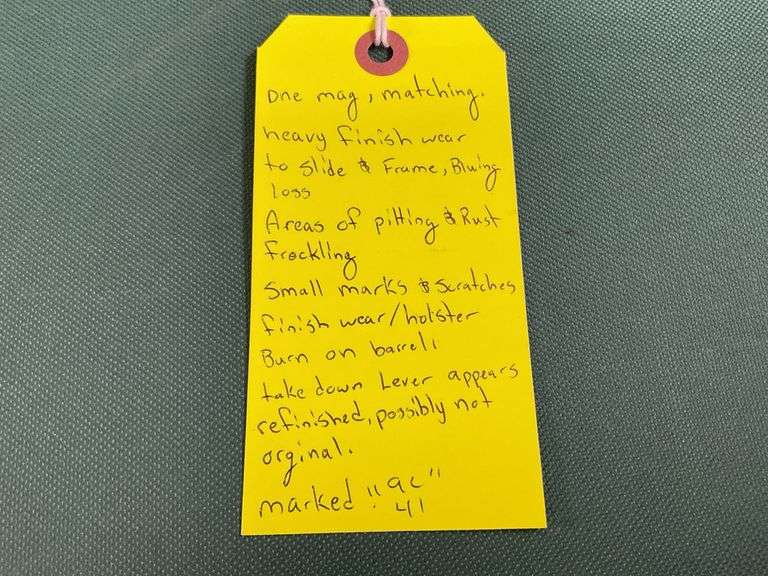 One mag, matching.
heavy finish wear
to slide & Frame, Bluing
loss
Areas of pitting & Rust
freckling
Small marks & Scratches
finish wear/holster
Burn on barrel.
take down Lever appears
refinished, possibly not
orginal.
marked "ac"
41